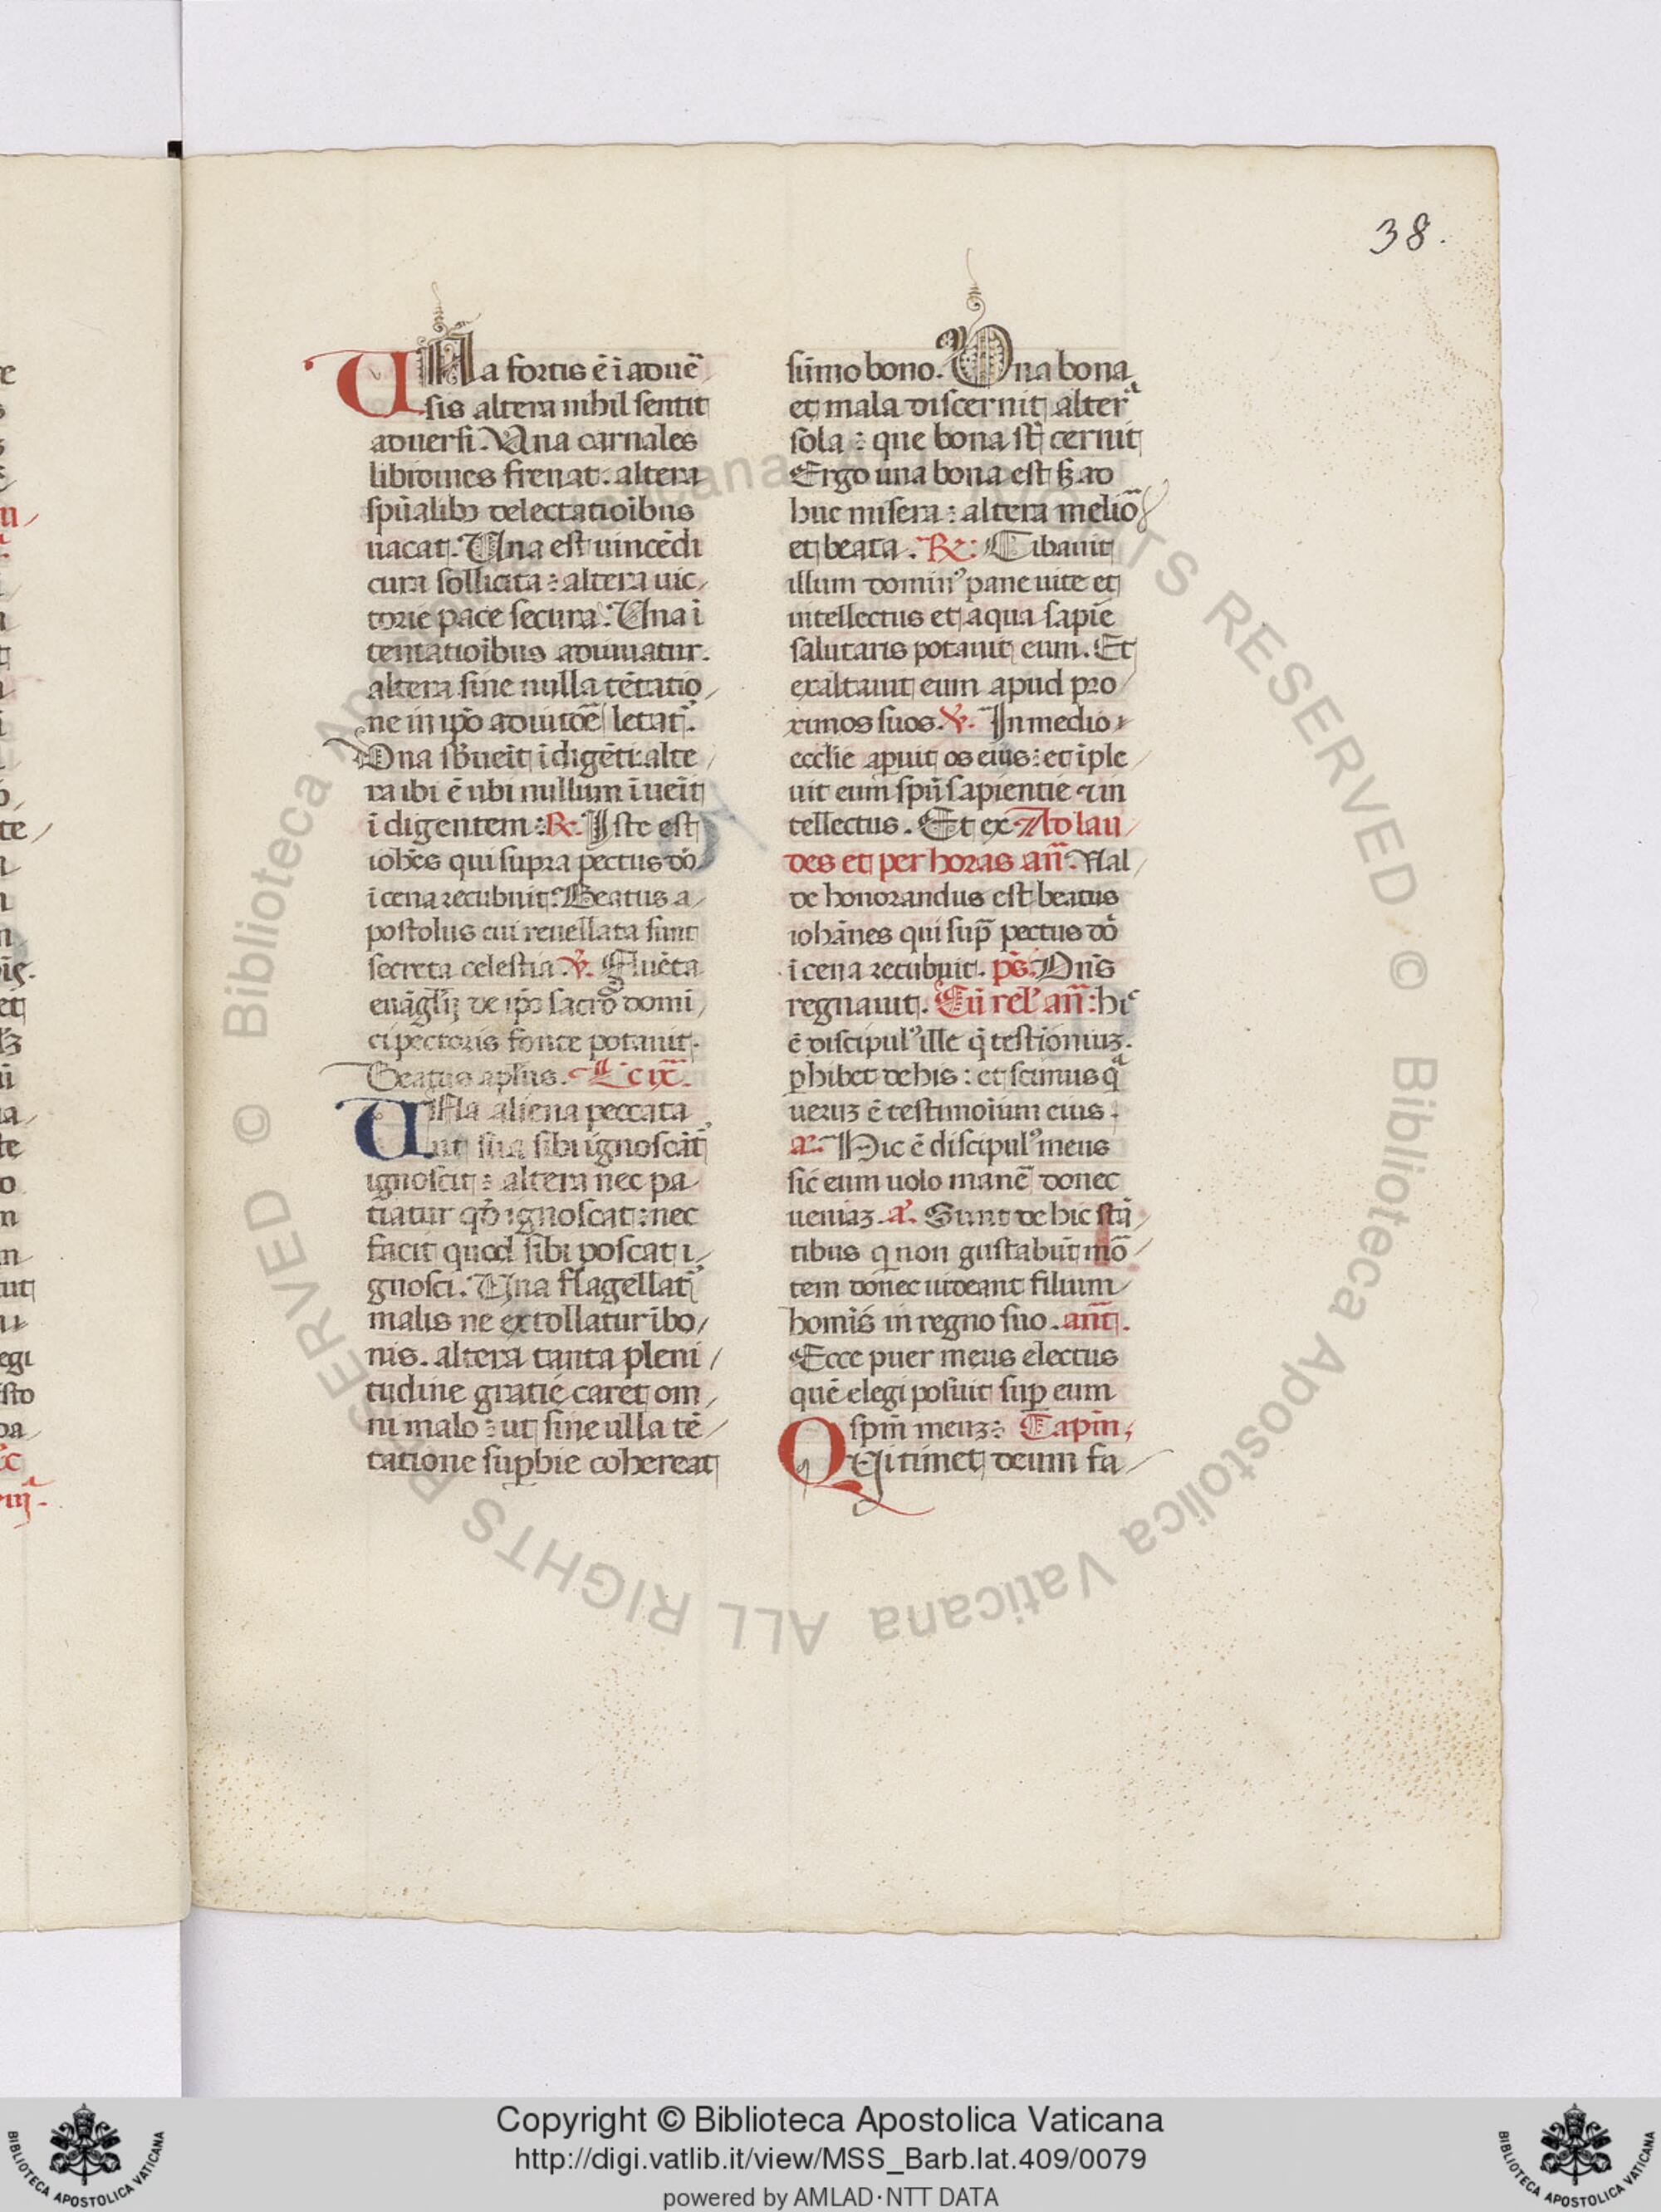 38.
UNa fortis ē ĩ aduē
sis altera nihil sentit
aduersi. Una carnales
libidines frenat: altera
spũalibʒ delectatiõibus
uacat. Una est uincẽdi
cura sollicita: altera uic
torie pace secura. Una ĩ
temtatiõibus adiuuatur.
altera sine nulla tẽtatio
ne in ip̃o adiutoẽ letat᷑.
Una sb̃ueit ĩdigẽti: alte
ra ibi ē ubi nullum ĩueit
ĩdigentem: R. Iste est
ioħes qui supra pectus dñ
ĩ cena recubuit: Beatus a
postolus cui reuellata sunt
secreta celestia. V. Fluẽta
euãglij de ip̃o sacro domi
ci pectoris fonte potauit.
Beatus apl̃us. Lc ix.
UNa aliena peccata
ut sua sibi ignoscãt᷑
ignoscit: altera nec pa
tiatur qđ ignoscat: nec
facit quod sibi poscat i
gnosci. Una flagellat᷑
malis ne extollatur ĩ bo
nis. altera tanta pleni
tudine gratie caret om
ni malo: ut sine ulla tẽ
tatione sup̱bie cohereat
sũmo bono. Una bona
et mala discernit alterᵃ
sola: que bona st̃ cernit
Ergo una bona est sʒ ad
huc misera: altera melio
et beata. R: Cibauit
illum dominꝰ pane uite et
intellectus et aqua sapiẽ
salutaris potauit eum. Et
exaltauit eum apud pro
ximos suos. V. In medio
ecclie apuit os eius: et ĩple
uit eum spũ sapientie ⁊ in
tellectus. Et ex Ad lau
des et per horas añ. Ual
de honorandus est beatus
iohãnes qui sup̃ pectus dñ
ĩ cena recubuit. p̃s. Dñs
regnauit. Cũ rel' añ: hiᶜ
ē discipulꝰ ille q̇ testĩoniuʒ.
p̱hibet de his: et scimus qᵃ
ueruʒ ē testimoĩum eius.
a. Hic ē discipulꝰ meus
sic̃ eum uolo manẽ donec
ueniaʒ. a. Sunt de hic stã
tibus q non gustabũt mõ
tem donec uideant filium
homĩs in regno suo. ant.
Ecce puer meus electus
quẽ elegi posuit sup̱ eum
spm̃ meuʒ: Capm̃,
QUi timet deum fa
Copyright © Biblioteca Apostolica Vaticana
http://digi.vatlib.it/view/MSS_Barb.lat.409/0079
powered by AMLAD·NTT DATA
© Biblioteca Apostolica Vaticana ALL RIGHTS RESERVED
© Biblioteca Apostolica Vaticana ALL RIGHTS RESERVED
BIBLIOTECA APOSTOLICA VATICANA
BIBLIOTECA APOSTOLICA VATICANA